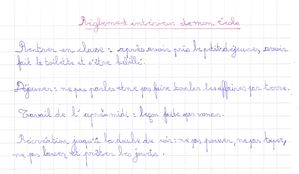 Règlement intérieur de mon école
Rentrer en classe : après avoir pris le petit déjeuner, avoir
fait la toilette et s'être habillé.
Déjeuner : ne pas parler et ne pas faire tomber les affaires par terre.
Travail de l'après midi : leçon faite par maman.
Récréation jusqu'à la du soir : ne pas pousser, ne pas taper,
ne pas et prêter les jouets.